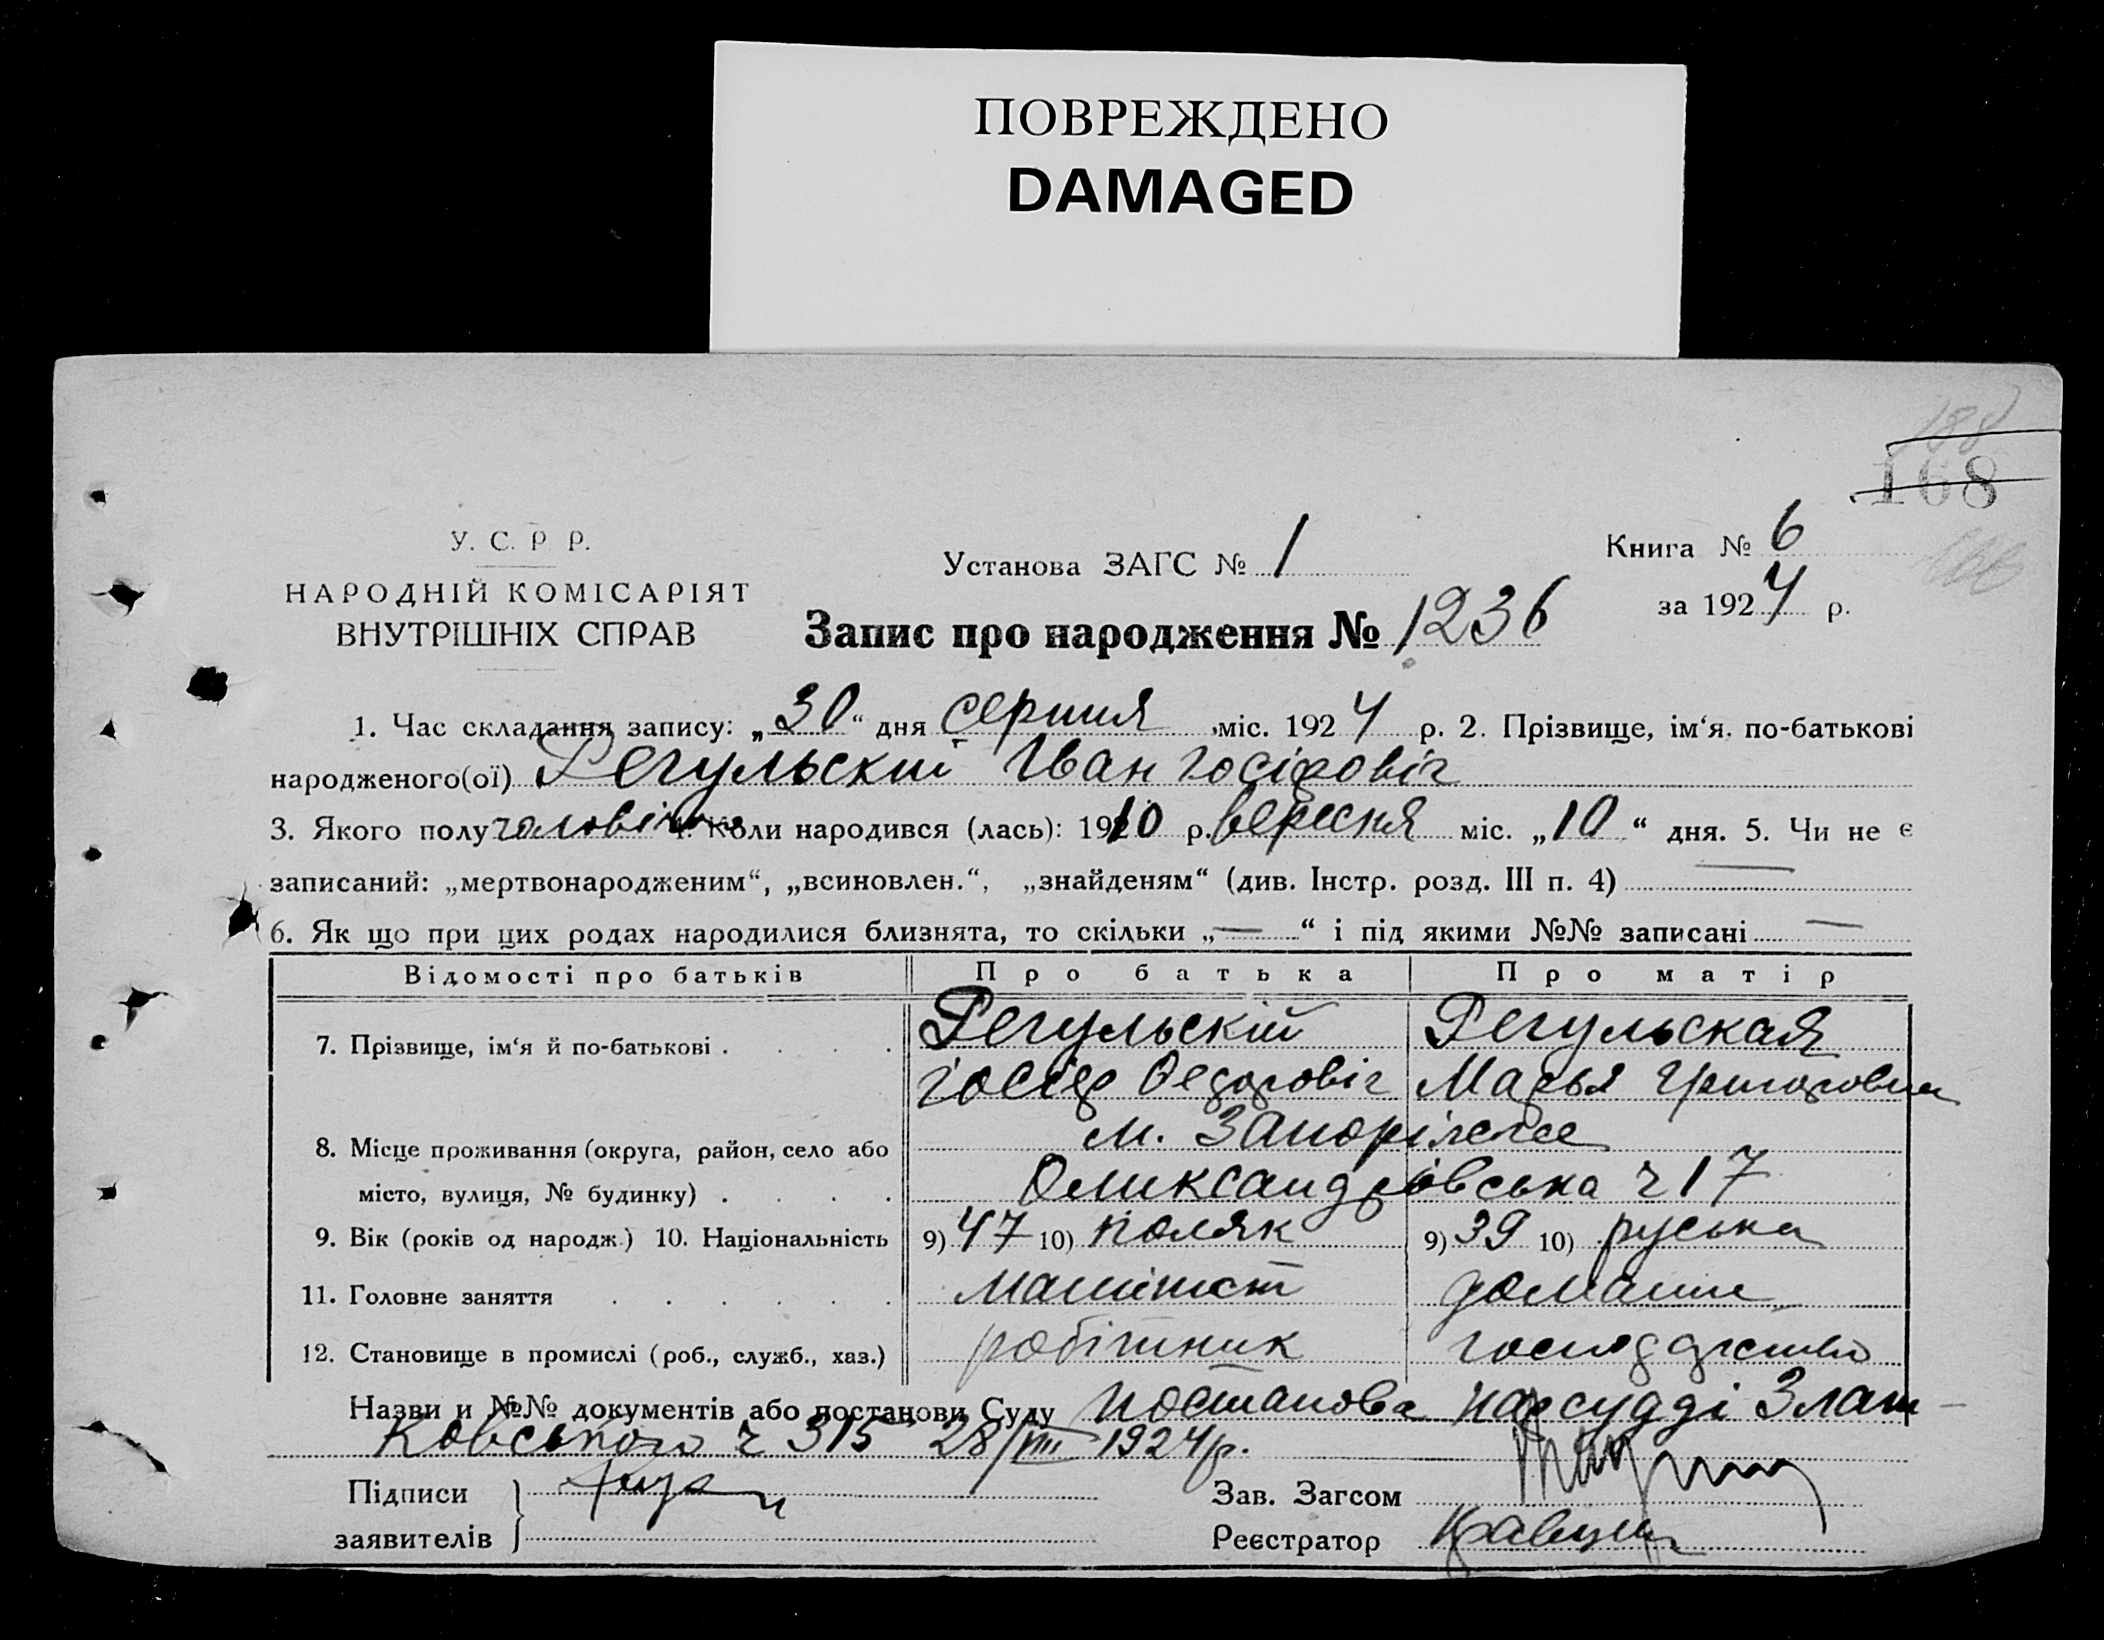 ПОВРЕЖДЕНО
DAMAGED
168
У. С. Р. Р.
НАРОДНІЙ КОМІСАРІЯТ
ВНУТРІШНІХ СПРАВ
Установа ЗАГС № 1
Книга № 6
за 1924 р.
Запис про народження № 1236
1. Час складання запису: „30“ дня серпня міс. 1924 р. 2. Прізвище, ім‘я. по-батькові
народженого(ої) Регульскій Іван Іосіфовіч
3. Якого полу чоловічи 4. Коли народився (лась): 1910 р. вересня міс. „10“ дня. 5. Чи не є
записаний: „мертвонародженим“, „всиновлен.“, „знайденям“ (див. Інстр. розд. III п. 4) —
6. Як що при цих родах народилися близнята, то скільки „—“ і під якими №№ записані —
Відомості про батьків Про батька Про матір
7. Прізвище, ім‘я й по-батькові . . . . Регульскій Регульская
Іосіф Федоровіч Марья Григоровна
8. Місце проживання (округа, район, село або м. Запоріжже
місто, вулиця, № будинку) . . . . Оликсандрівська ч 17
9. Вік (років од народж.) 10. Національність 9) 47 10) поляк 9) 39 10) руська
11. Головне заняття . . . . . . машініст домашне
12. Становище в промислі (роб., служб., хаз.) робітник господарство
Назви и №№ документів або постанови Суду постанова нарсудді Злат-
ковського ч 315 28/VIII 1924 р.
Підписи
Зав. Загсом
заявителів
Реєстратор Кравець